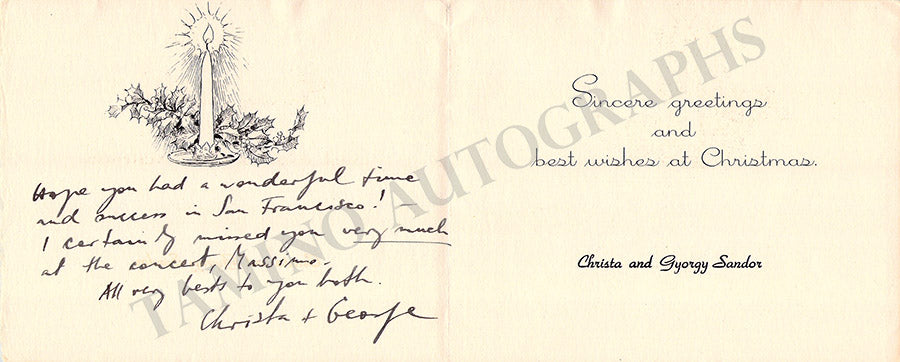 Hope you had a wonderful time
and success in San Francisco! –
I certainly missed you very much
at the concert, Massimo.
All very bests to you both.
Christa + George
Sincere greetings
and
best wishes at Christmas.
Christa and Gyorgy Sandor
TAMINO AUTOGRAPHS